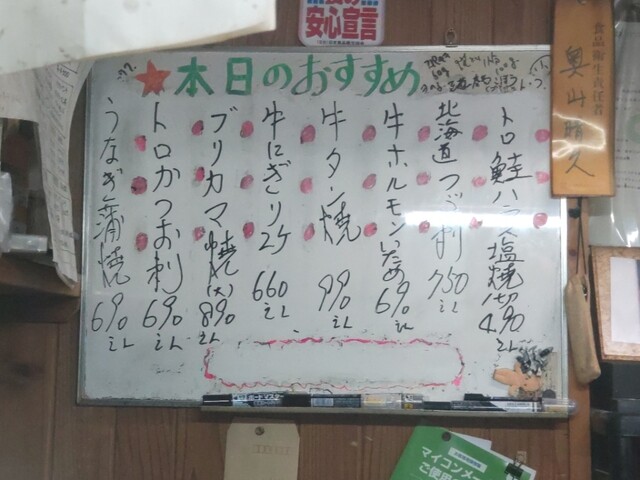 安心宣言
食品衛生責任者
奥山晴久
★本日のおすすめ
トロ鮭ハラス塩焼 490エン
北海道つぶ刺 750エン
牛ホルモンいため 690エン
牛タン焼 990エン
牛にぎり2ケ 660エン
ブリカマ焼(大) 890エン
トロかつお刺 690エン
うなぎ蒲焼 690エン
ボードマスター
マイコンメ
ご使用